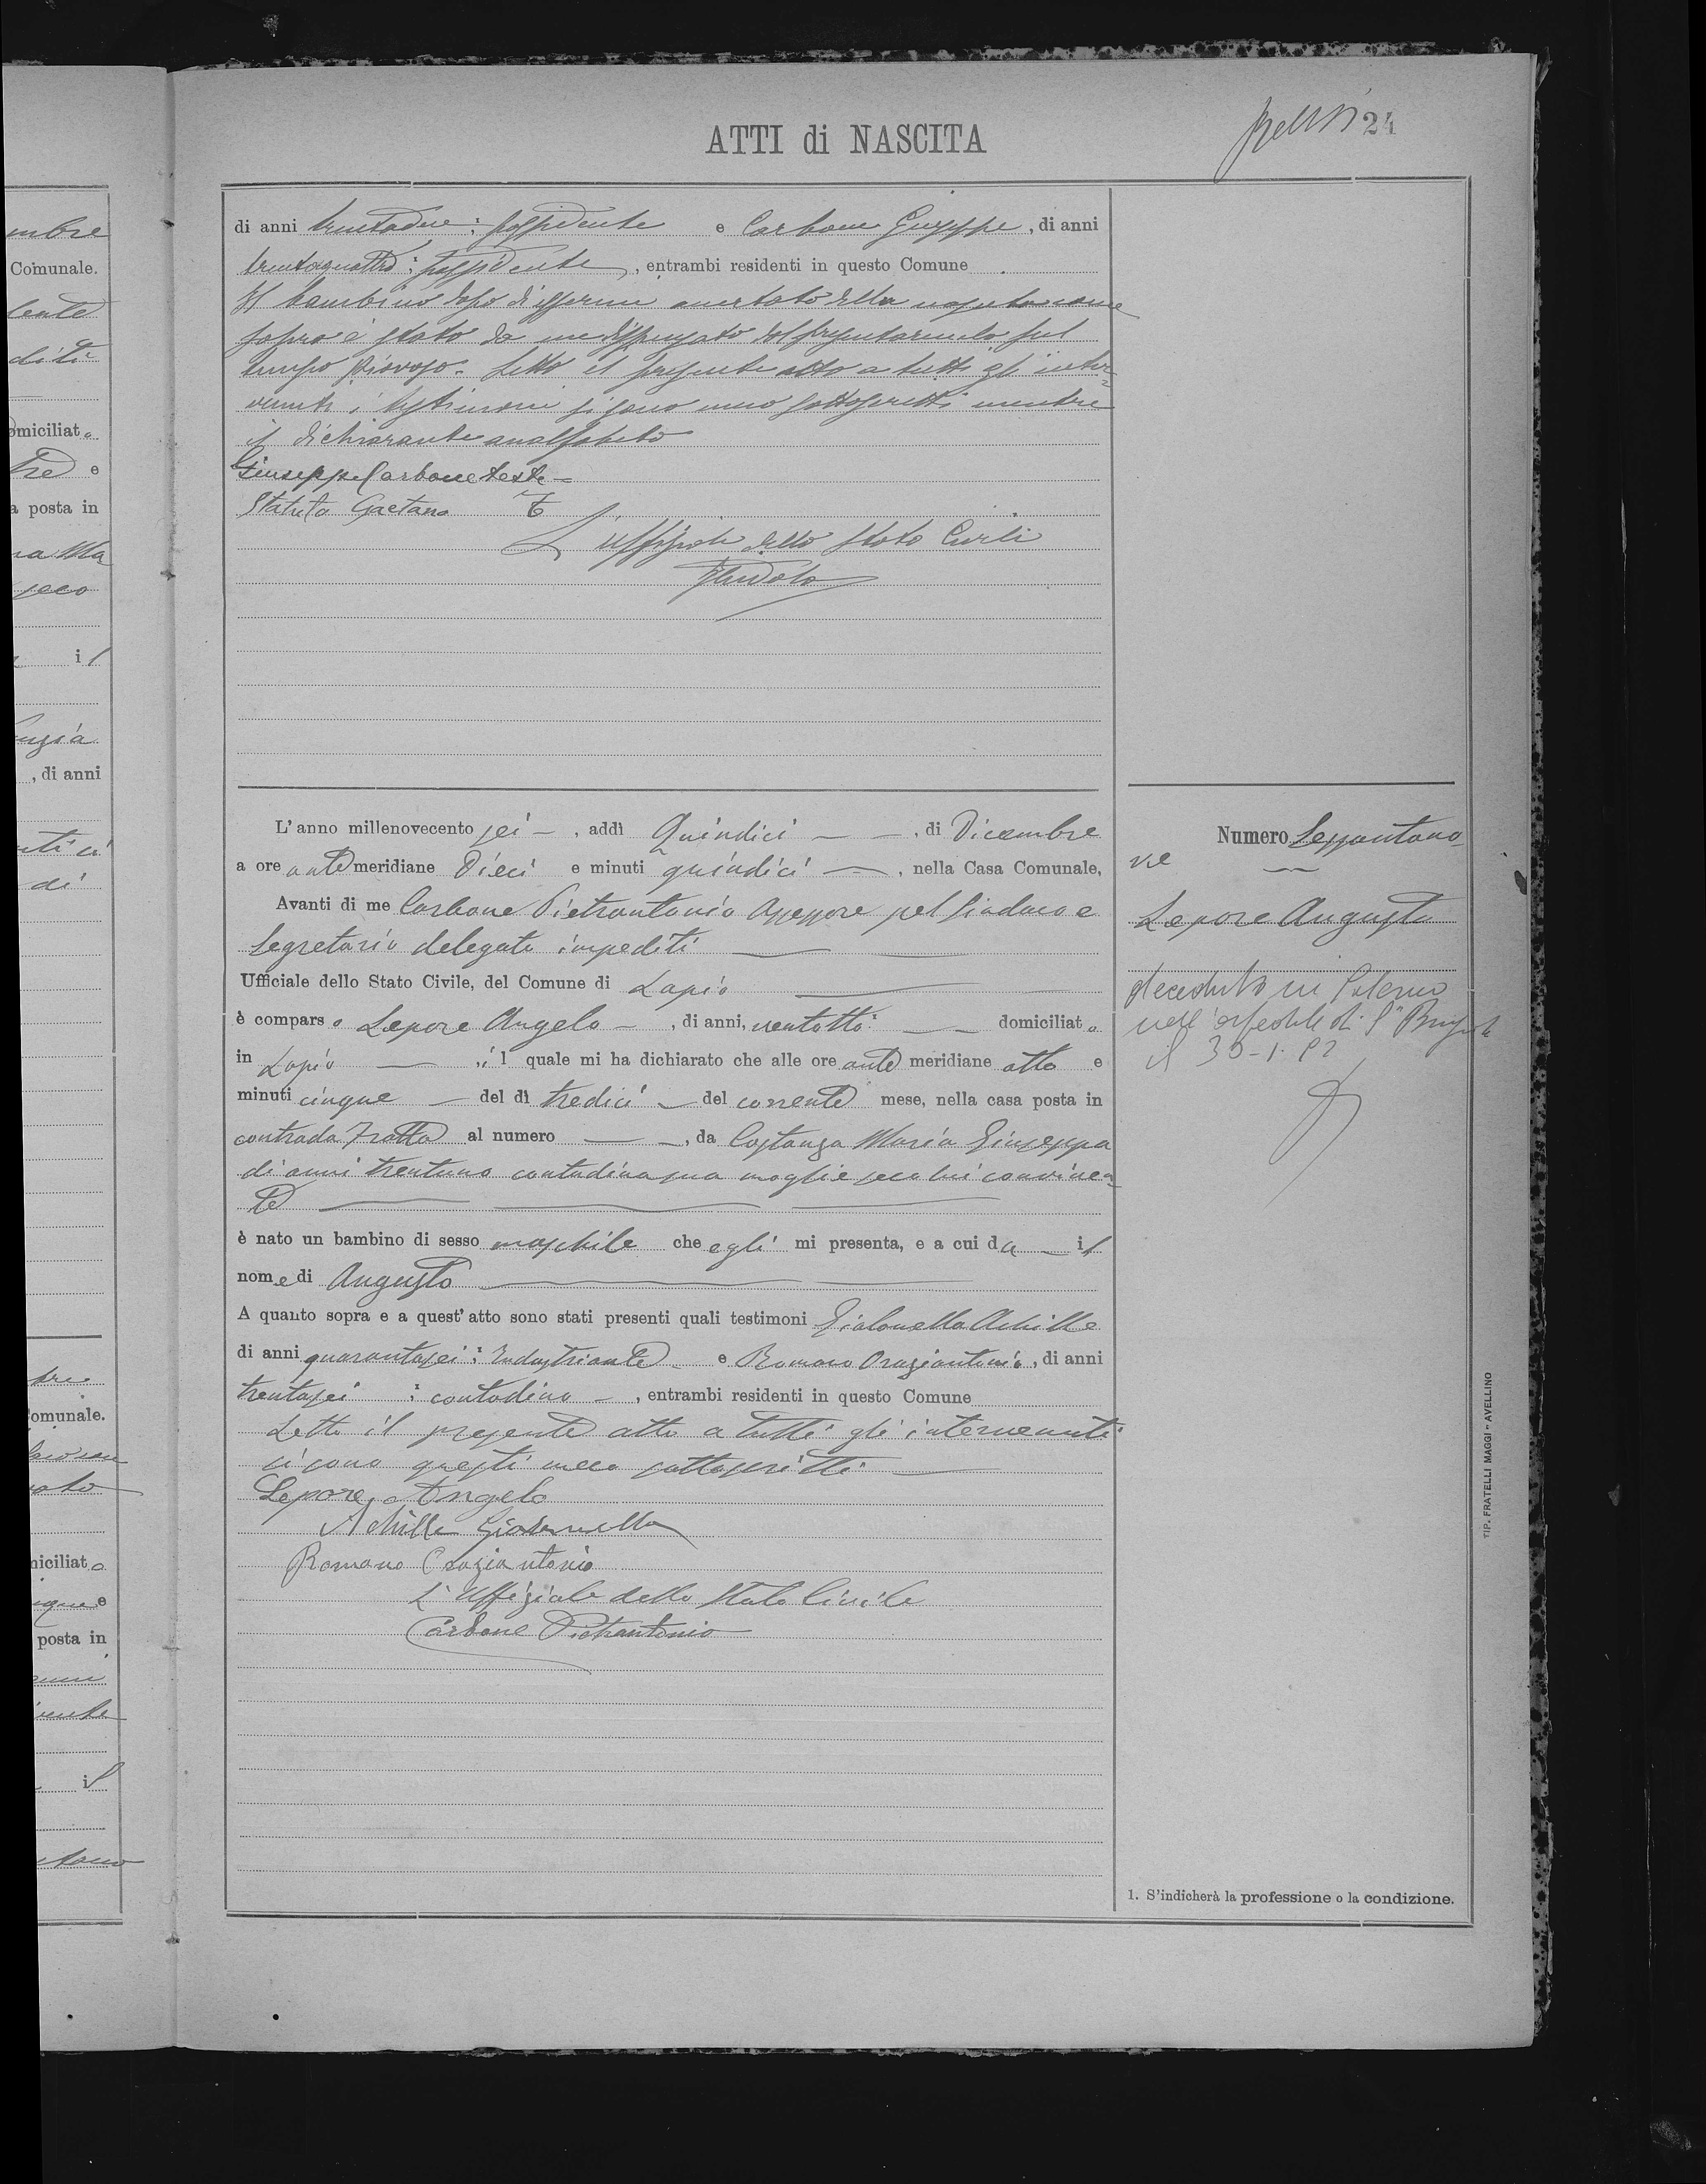 24
ATTI di NASCITA
di anni trentadue; possidente e Carbone Giuseppe, di anni
trentaquattro; possidente, entrambi residenti in questo Comune
Il bambino dopo di essermi accertato della nascita come
sopra è stato da me dispensato dal presentarmelo pel
tempo piovoso. Letto il presente atto a tutti gli inter-
venuti i testimoni si sono meco sottoscritti mentre
il dichiarante analfabeta
Giuseppe Carbone teste
Statuto Gaetano T
L'uffiziale dello Stato Civile
L'anno millenovecento sei, addì Quindici, di Dicembre
a ore antemeridiane Dieci e minuti quindici, nella Casa Comunale,
Avanti di me Carbone Pietrantonio Assessore pel Sindaco e
Segretario delegato impediti
Ufficiale dello Stato Civile, del Comune di Lapio
è comparso Lepore Angelo, di anni, ventotto domiciliato
in Lapio, il quale mi ha dichiarato che alle ore ante meridiane otto e
minuti cinque del dì tredici del corrente mese, nella casa posta in
contrada Fratta al numero, da Costanza Maria Giuseppa
di anni trentuno contadina sua moglie seco lui conviven-
te
è nato un bambino di sesso maschile che egli mi presenta, e a cui da il
nome di Augusto
A quanto sopra e a quest'atto sono stati presenti quali testimoni Gialonella Achille
di anni quarantasei; Industriante e Romano Oraziantonio, di anni
trentasei; contadino, entrambi residenti in questo Comune
Letto il presente atto a tutti gli intervenuti
si sono questi meco sottoscritti
Lepore Angelo
Achille Gialonella
Romano Oraziantonio
L'Uffiziale dello Stato Civile
Carbone Pietrantonio
Numero Sessantano
ve
Lepore Augusto
deceduto in
nell'ospedale di
il 30-1-
1. S'indicherà la professione o la condizione.
TIP. FRATELLI MAGGI - AVELLINO